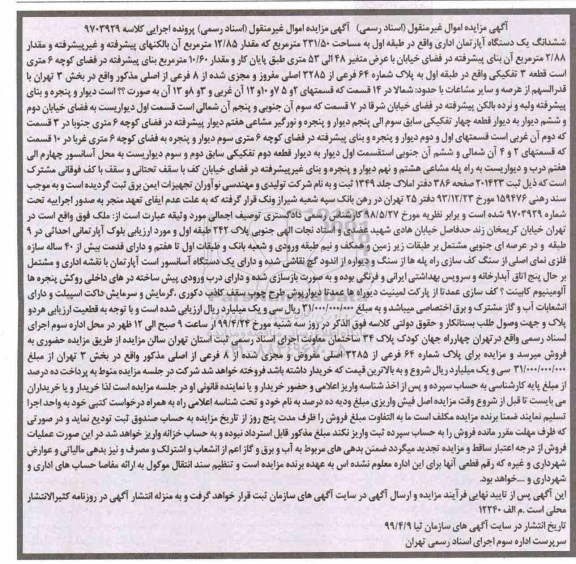 آگهی مزایده اموال غیرمنقول (اسناد رسمی) آگهی مزایده اموال غیرمنقول (اسناد رسمی) پرونده اجرایی کلاسه ۹۷۰۳۹۲۹
ششدانگ یک دستگاه آپارتمان اداری واقع در طبقه اول به مساحت ۲۳۱/۵۰ مترمربع که مقدار ۱۲/۸۵ مترمربع آن بالکنهای پیشرفته و غیرپیشرفته و مقدار
۲/۸۸ مترمربع آن بنای پیشرفته در فضای خیابان با عرض متغیر ۴۸ الی ۵۳ متری طبق پایان کار و مقدار ۱۰/۶۰ مترمربع بنای پیشرفته در فضای کوچه ۶ متری
است قطعه ۳ تفکیکی واقع در طبقه اول به پلاک شماره ۶۴ فرعی از ۳۲۸۵ اصلی مفروز و مجزی شده از ۸ فرعی از اصلی مذکور واقع در بخش ۳ تهران با
قدرالسهم از عرصه و سایر مشاعات با حدود: شمالا در ۱۴ قسمت که قسمتهای ۲ و ۵ و۷ و۱۰و ۱۲ آن غربی و ۳و ۸و ۱۳ آن به صورت ؟؟ است دیوار و پنجره و بنای
پیشرفته ولبه و نرده بالکن پیشرفته در فضای خیابان شرقا در ۷ قسمت که سوم آن جنوبی و پنجم آن شمالی است قسمت اول دیواریست به فضای خیابان دوم
و ششم دیوار به دیوار قطعه چهار تفکیکی سابق سوم الی پنجم دیوار و پنجره و نورگیر مشاعی هفتم دیوار پیشرفته در فضای کوچه ۶ متری جنوبا در ۳ قسمت
که دوم آن غربی است قسمتهای اول و دوم دیوار و پنجره و بنای پیشرفته در فضای کوچه ۶ متری سوم دیوار و پنجره به فضای کوچه ۶ متری غربا در ۱۰ قسمت
که قسمتهای ۲ و ۴ آن شمالی و ششم آن جنوبی استقسمت اول دیوار به دیوار قطعه دوم تفکیکی سابق دوم و سوم دیواریست به محل آسانسور چهارم الی
هفتم درب و دیواریست به راه پله مشاعی هشتم و نهم دیوار و پنجره و بنای غیرپیشرفته در فضای خیابان کف با سقف تحتانی و سقف با کف فوقانی مشترک
است که ذیل ثبت ۲۰۱۴۲۳ صفحه ۳۸۶ دفتر املاک جلد ۱۳۴۹ ثبت و به نام شرکت تولیدی و مهندسی نوآوران تجهیزات ایمن برق ثبت گردیده است و به موجب
سند رهنی ۱۵۹۴۷۶ مورخ ۹۳/۱۲/۲۳ دفتر ۲۵ تهران در رهن بانک سپه شعبه شیراز ونک قرار گرفته که به علت عدم ایفای تعهد منجر به صدور اجراییه تحت
شماره ۹۷۰۳۹۲۹ شده است و برابر نظریه مورخ ۹۸/۵/۲۷ کارشناس رسمی دادگستری توصیف اجمالی مورد وثیقه عبارت است از: ملک فوق واقع است در
تهران خیابان کریمخان زند حدفاصل خیابان هادی شهید عضدی و استاد نجات الهی جنوبی پلاک ۲۴۲ طبقه اول و مورد ارزیابی بلوک آپارتمانی احداثی در ۹
طبقه و در عرصه ای جنوبی مشتمل بر طبقات زیر زمین و همکف و نیم طبقه ورودی و شعبه بانک و طبقات اول تا هفتم و دارای قدمت بیش از ۴۰ ساله سازه
فلزی نمای اصلی از سنگ کف سازی راه پله ها از سنگ و دیواره از اندود گچ نقاشی شده و دارای یک دستگاه آسانسور است آپارتمان با نقشه اداری و مشتمل
بر حال پنج اتاق آبدارخانه و سرویس بهداشتی ایرانی و فرنگی بوده و به صورت بازسازی شده و دارای درب ورودی پیش ساخته در های داخلی روکش پنجره ها
آلومینیوم کابینت ؟ کف سازی عمدتا از پارکت لمینیت دیواره ها عمدتا دیوارپوش طرح چوب سقف کاذب دکوری ،گرمایش و سرمایش داکت اسپیلت و دارای
انشعابات آب و گاز مشترک و برق اختصاصی میباشد و به مبلغ ۳۱/۰۰۰/۰۰۰/۰۰۰ ریال سی و یک میلیارد ریال ارزیابی شده است و با توجه به قطعیت ارزیابی هردو
پلاک و جهت وصول طلب بستانکار و حقوق دولتی کلاسه فوق الذکر در روز سه شنبه مورخ ۹۹/۴/۲۴ از ساعت ۹ صبح الی ۱۲ ظهر در محل اداره سوم اجرای
اسناد رسمی واقع درتهران چهارراه جهان کودک پلاک ۳۴ ساختمان معاونت اجرای اسناد رسمی ثبت استان تهران سالن مزایده از طریق مزایده حضوری به
فروش میرسد و مزایده برای پلاک شماره ۶۴ فرعی از ۳۲۸۵ اصلی مفروض و مجزی شده از ۸ فرعی از اصلی مذکور واقع در بخش ۳ تهران از مبلغ
۳۱/۰۰۰/۰۰۰/۰۰۰ سی و یک میلیارد ریال شروع و به بالاترین قیمت که خریدار داشته باشد فروخته خواهد شد شرکت در جلسه مزایده منوط به پرداخت ده درصد
از مبلغ پایه کارشناسی به حساب سپرده و پس از اخذ شناسه واریز اعلامی و حضور خریدار و یا نماینده قانونی او در جلسه مزایده است لذا خریدار و یا خریداران
می بایست تا قبل از شروع وقت مزایده اصل فیش واریزی مبلغ ودیه ده درصد به نام خود و تحت شناسه اعلامی راه به همراه درخواست کتبی خود به واحد اجرا
تسلیم نمایند ضمنا برنده مزایده مکلف است ما به التفاوت مبلغ فروش را ظرف مدت پنج روز از تاریخ مزایده به حساب صندوق ثبت تودیع نماید و در صورتی
که ظرف مهلت مقرر مانده فروش را به حساب سپرده ثبت واریز نکند مبلغ مذکور قابل استرداد نبوده و به حساب خزانه واریز خواهد شد در این صورت عملیات
فروش از درجه اعتبار ساقط و مزایده تجدید میگردد ضمن بدهی های مربوط به آب و برق و گاز اعم از انشعاب و اشترلک و مصرف و نیز بدهی مالیاتی و عوارض
شهرداری و غیره که رقم قطعی آنها برای این اداره معلوم نشده اس به عهده برنده مزایده است و تنظیم سند انتقال موکول به ارائه مفاصا حساب های اداری و
شهرداری و ....خواهد بود.
این آگهی پس از تایید نهایی فرآیند مزایده و ارسال آگهی در سایت آگهی های سازمان ثبت قرار خواهد گرفت و به منزله انتشار آگهی در روزنامه کثیرالانتشار
محلی است .م الف ۱۲۲۴۰
تاریخ انتشار در سایت آگهی های سازمان ثبا ۹۹/۴/۹
سرپرست اداره سوم اجرای اسناد رسمی تهران